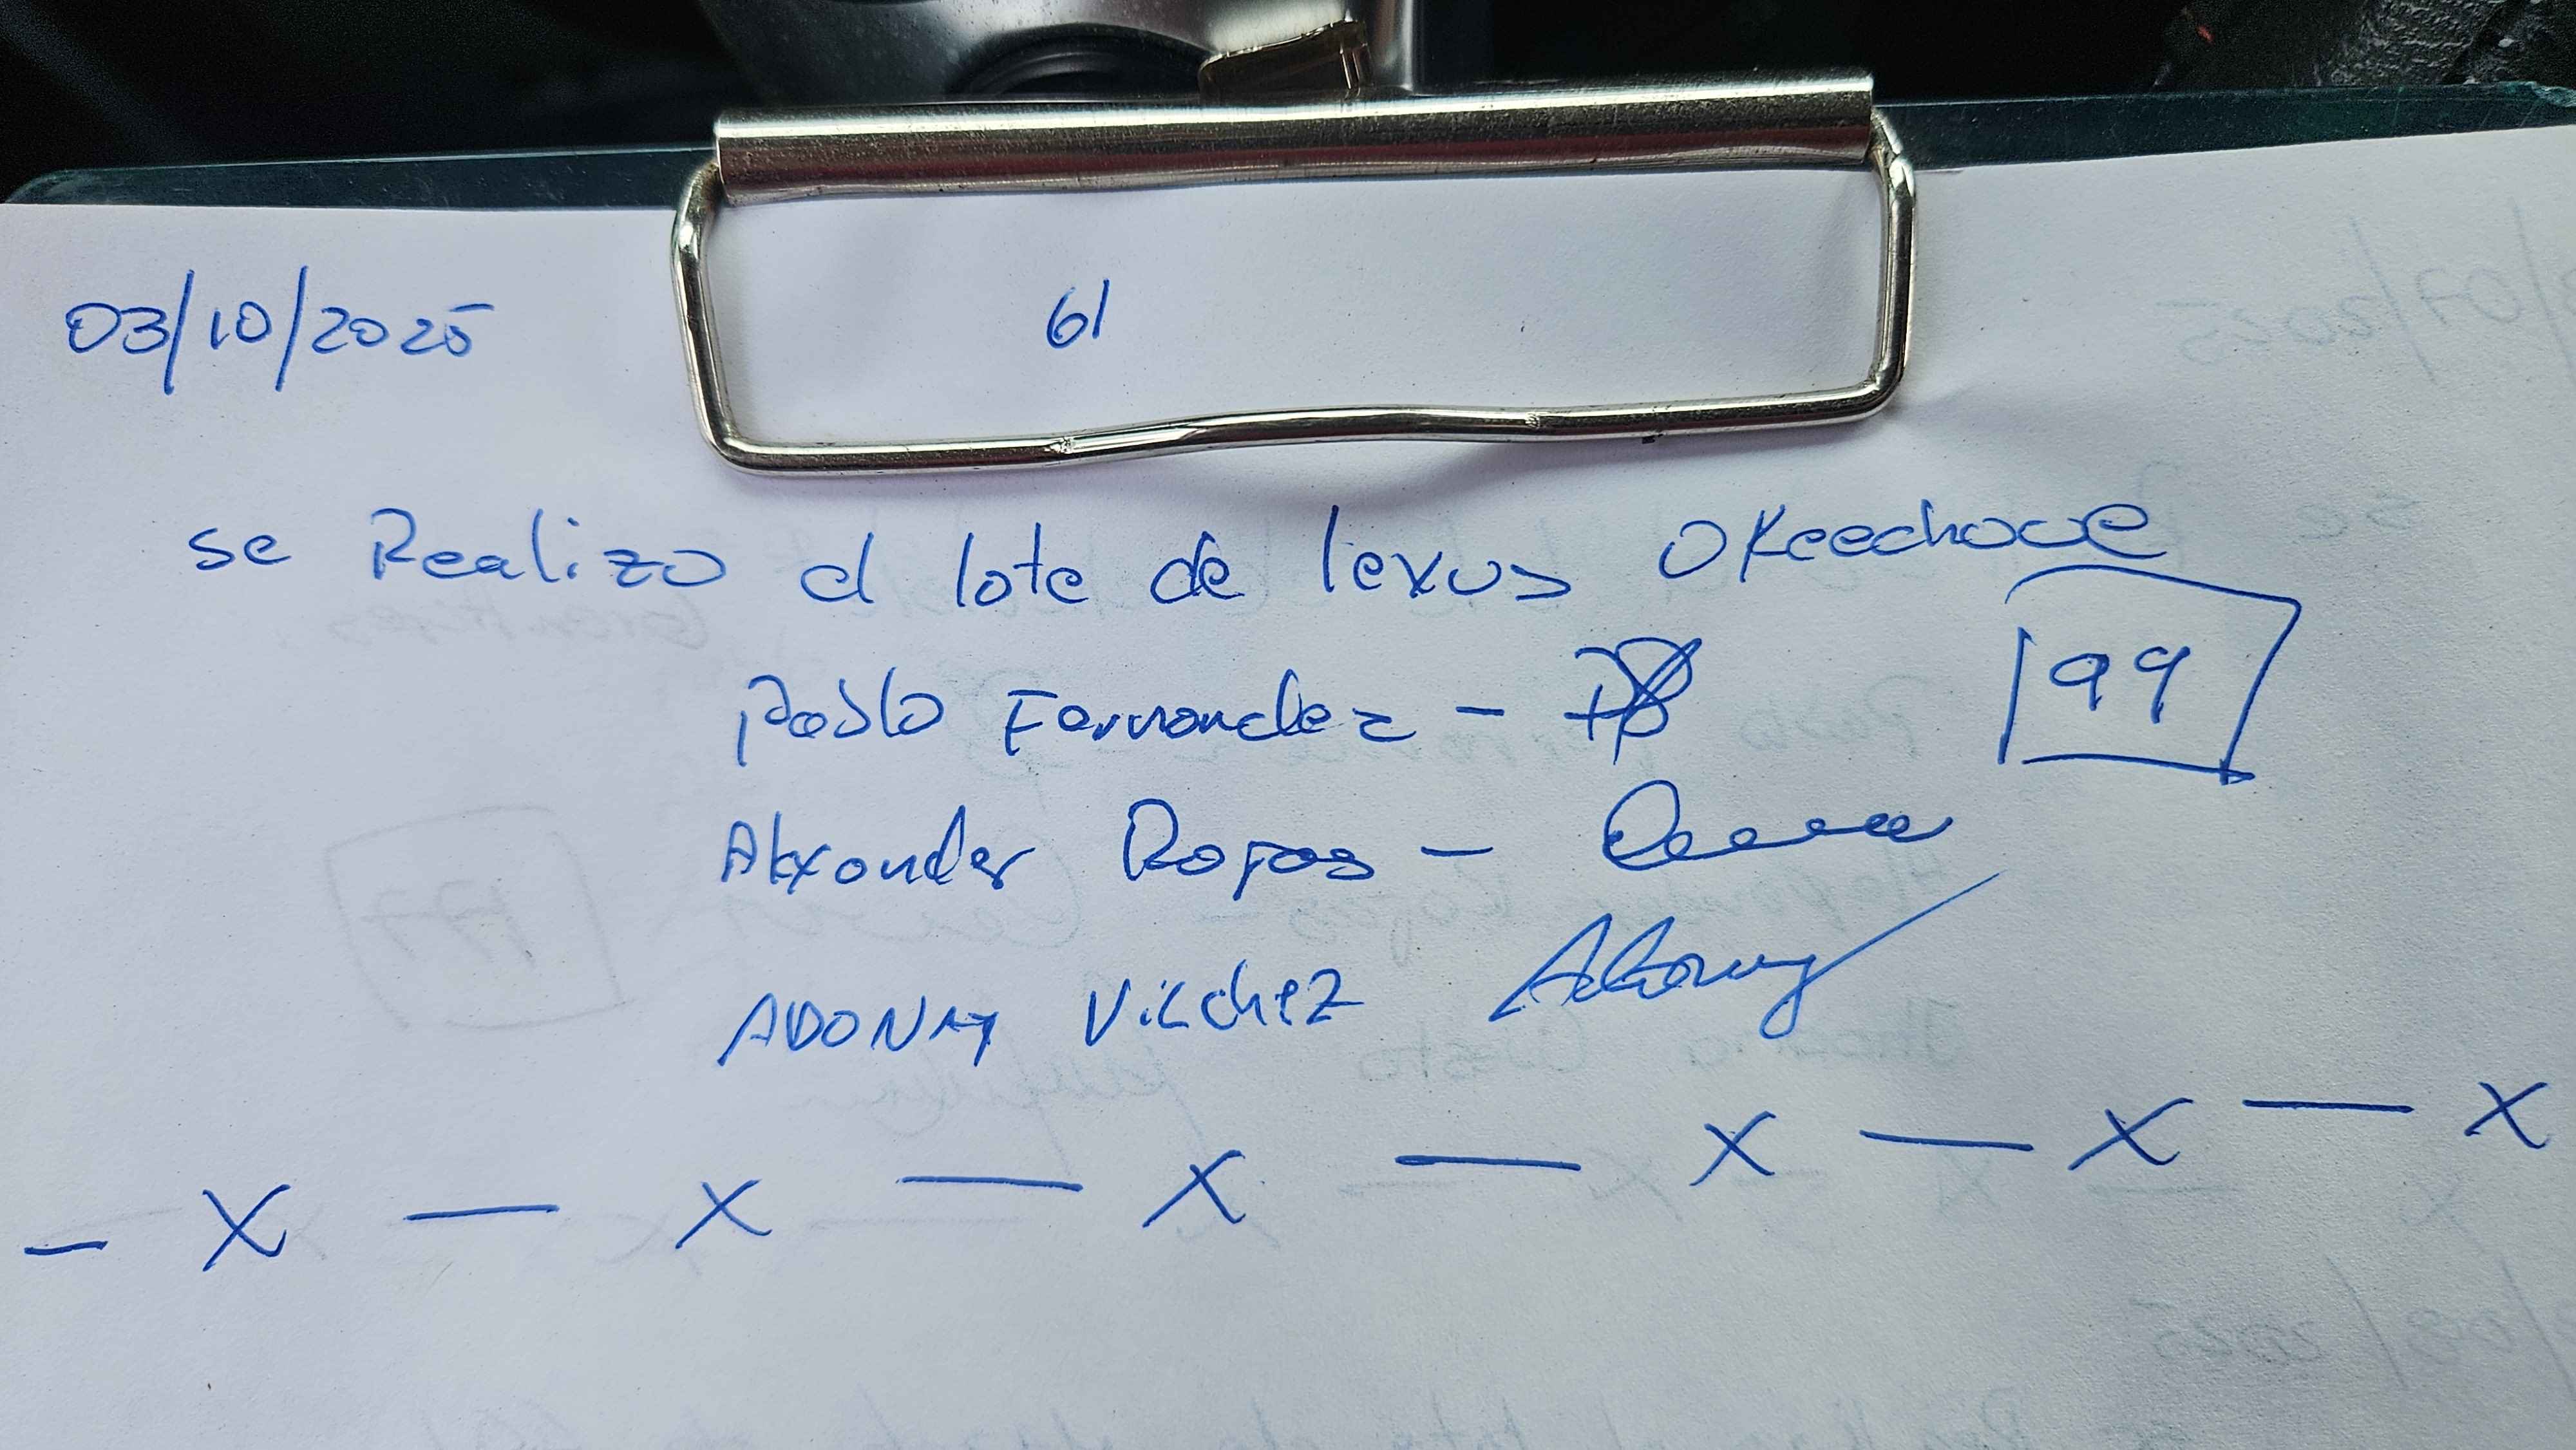 03/10/2025 61
se Realizo el lote de lexus Okeechove
99
Pablo Fernandez -
Alexander Rojas -
ADONAY VilchEZ Adonay
- X - X - X - X - X - X